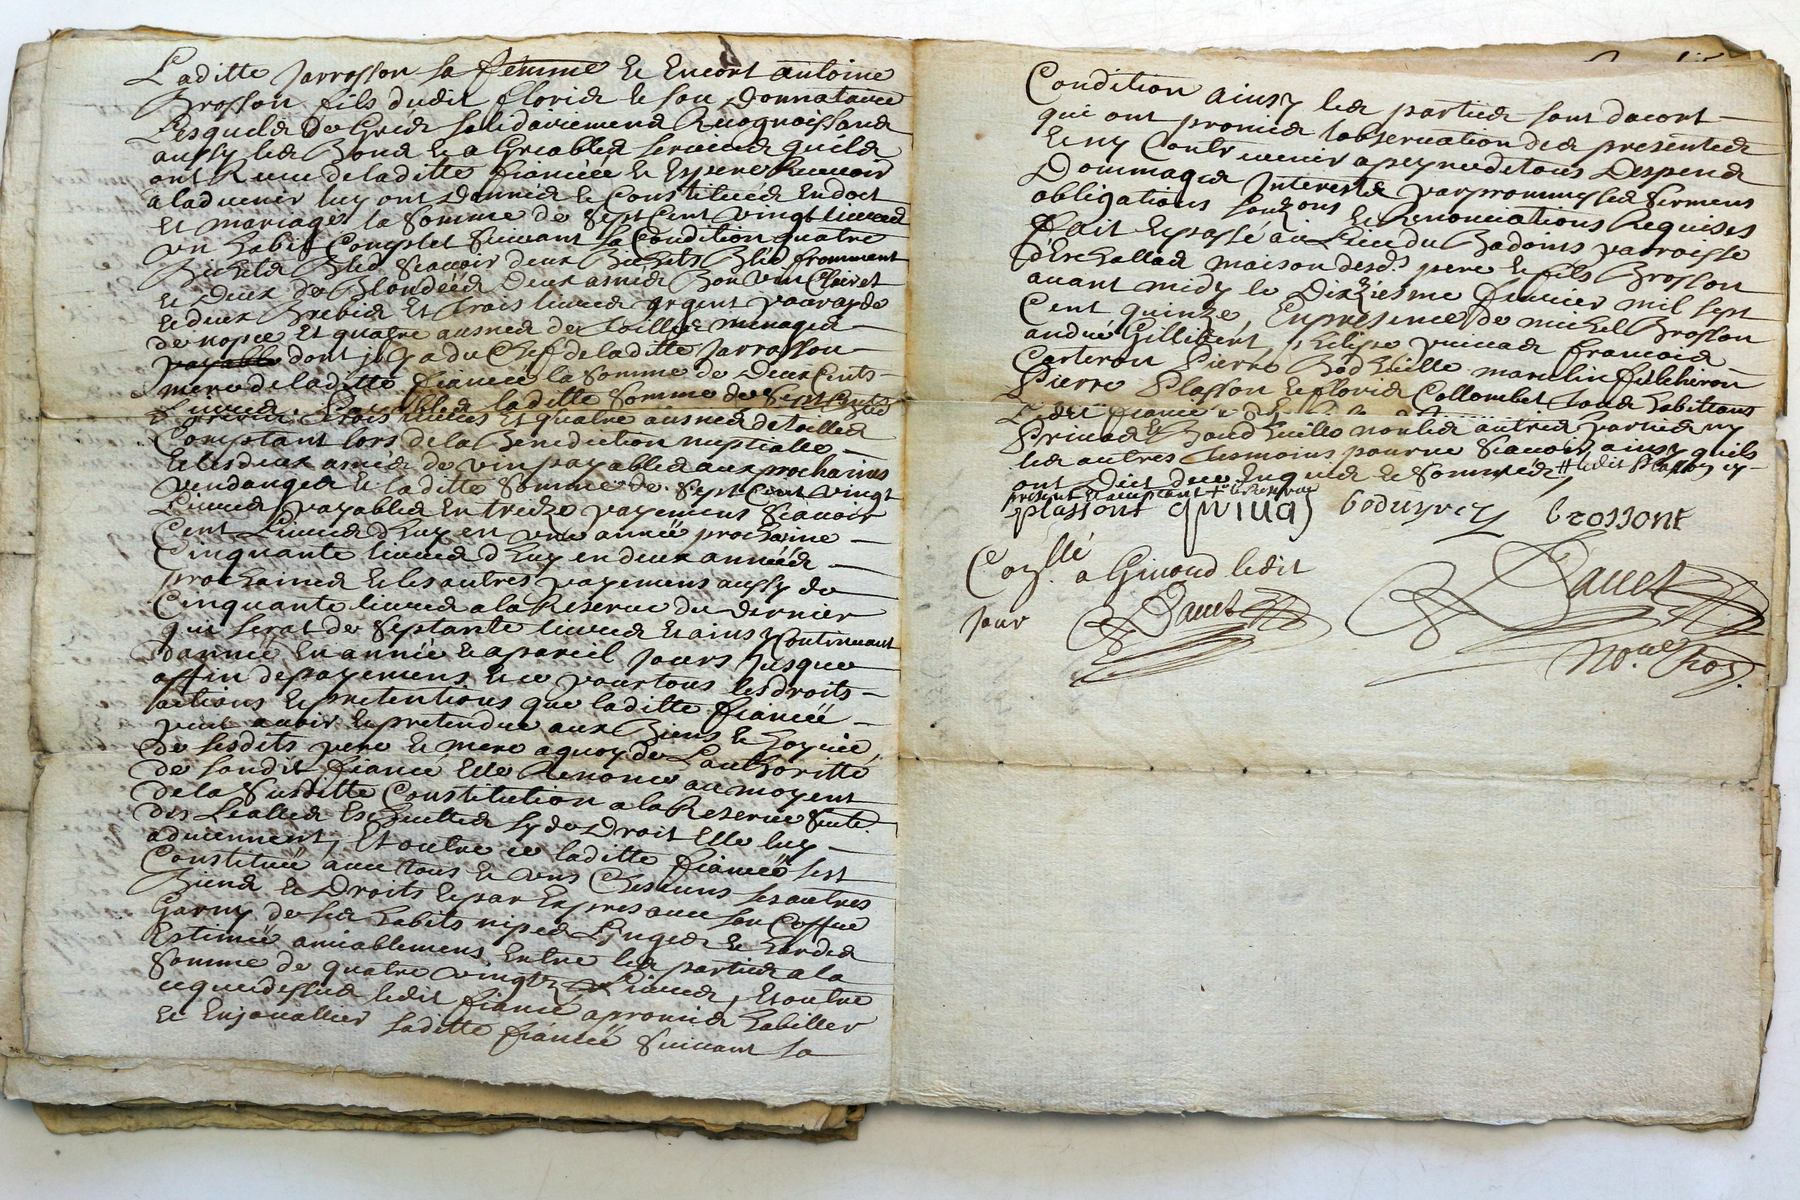 Laditte Jarrosson sa femme et encort antoine
Brosson fils dudit floris et son donnataire
Lesquels de Gréz solidairement Recognoissans
aussy les Bons et agreables services quils
ont Receu de laditte fiancéé et Espere Recevoir
a ladvenir luy ont donnés et Constitués En dot
et mariage la somme de Sept Cent vingt livres
un habit Complet suivant sa Condition quatre
Bichets Bled scavoir deux Bichets Bled fromment
et deux de Blondéé deux asnéé Bon vin Clairet
et deux Brebis et trois livres argent pour
de nopce et quatre ausnes de toilles menages
payable dont il y a du Chef de laditte Jarrosson
mere de laditte fiancée la somme de Deux Cents
Livres Payables laditte somme de Sept Cents
trois livres et quatre ausnes de toilles
Comptant lors de la Benediction nuptialle
et les deux asnéé de vin payables aux prochaines
vendanges et laditte somme de Sept Cent vingt
Livres payables en treize payemens scavoir
Cent Livres d'huy en une année prochaine
Cinquante livres d'huy en deux annéés
prochaines et les autres payemens aussy de
Cinquante livres a la Reserve du dernier
qui serat de septante livres et ainsy Continuant
d'année en année et apareil jours jusque
affin de payemens et ce pour tous les droits
actions et pretentions que laditte fiancéé
peut avoir et pretendre aux Biens et hoyrie
de sesdits pere et mere a quoy de Lauthoritté
de sondit fiancé Elle Renonce au moyent
de la susditte Constitution a la Reserve
des Lealles Escheuttes sy de Droit Elle luy
adviennent, Et outre ce laditte fiancéé sest
Constituéé avec tous et uns Chescuns ses autres
Biens et Droits et par Expres avec son Coffre
Garny de ses habits nipes Linges et hardes
Estiméé amiablement Entre les parties a la
Somme de quatre vingts Livres, Et outre
ce que dessus ledit fiancé a promis habiller
et Enjouallier laditte fiancéé suivant sa
Condition ainsy les parties sont dacort
qui ont promis lobservation des presentes
et ny Contrevenir a peyne de tous Despens
Dommages Interests par promesses sermens
obligations et Renonciations Requises
fait et passé au Lieu du Badoins parroisse
d'Eschallas maison desds. pere et fils Brosson
avant midy le Dixiesme fevrier mil sept
Cent quinze, En presence de michel Brosson
andré Gillibert, Privas françois
Carteron Pierre Bodheille marcelin fulchiron
Pierre Plasson et floris Collombet tous habittans
Ledit fiancé
Privas et Bodheille non les autres parties ny
les autres tesmoins pour ne scavoir ainsy quils
ont Dict de ce Enquis et Sommés # ledit Plasson cy
present et acceptant
plassont privas boduyriez brossont
Conllé a Givord ledit
Jour
Dauet
Dauet
No.re Roy.